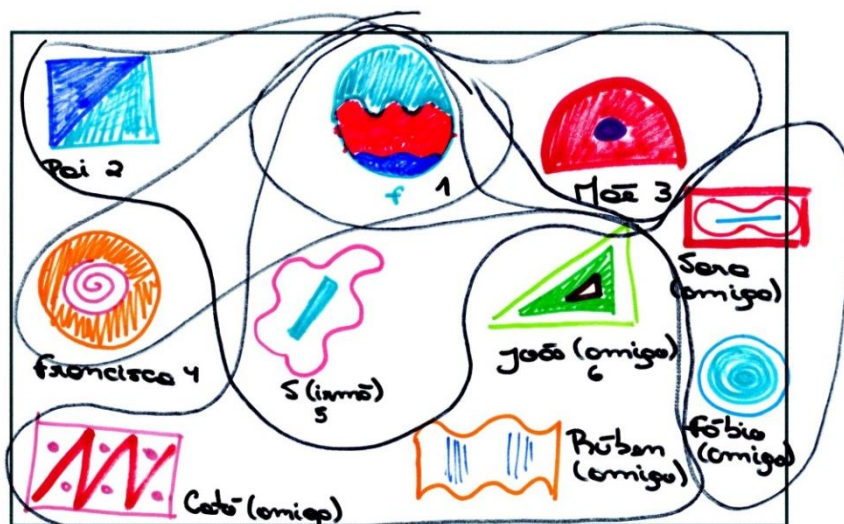 Pai 2
f 1
Mãe 3
Sara
(amiga)
francisca 4
S (irmã)
5
João (amigo)
6
fábio
(amigo)
Rúben
(amigo)
Catá (amiga)